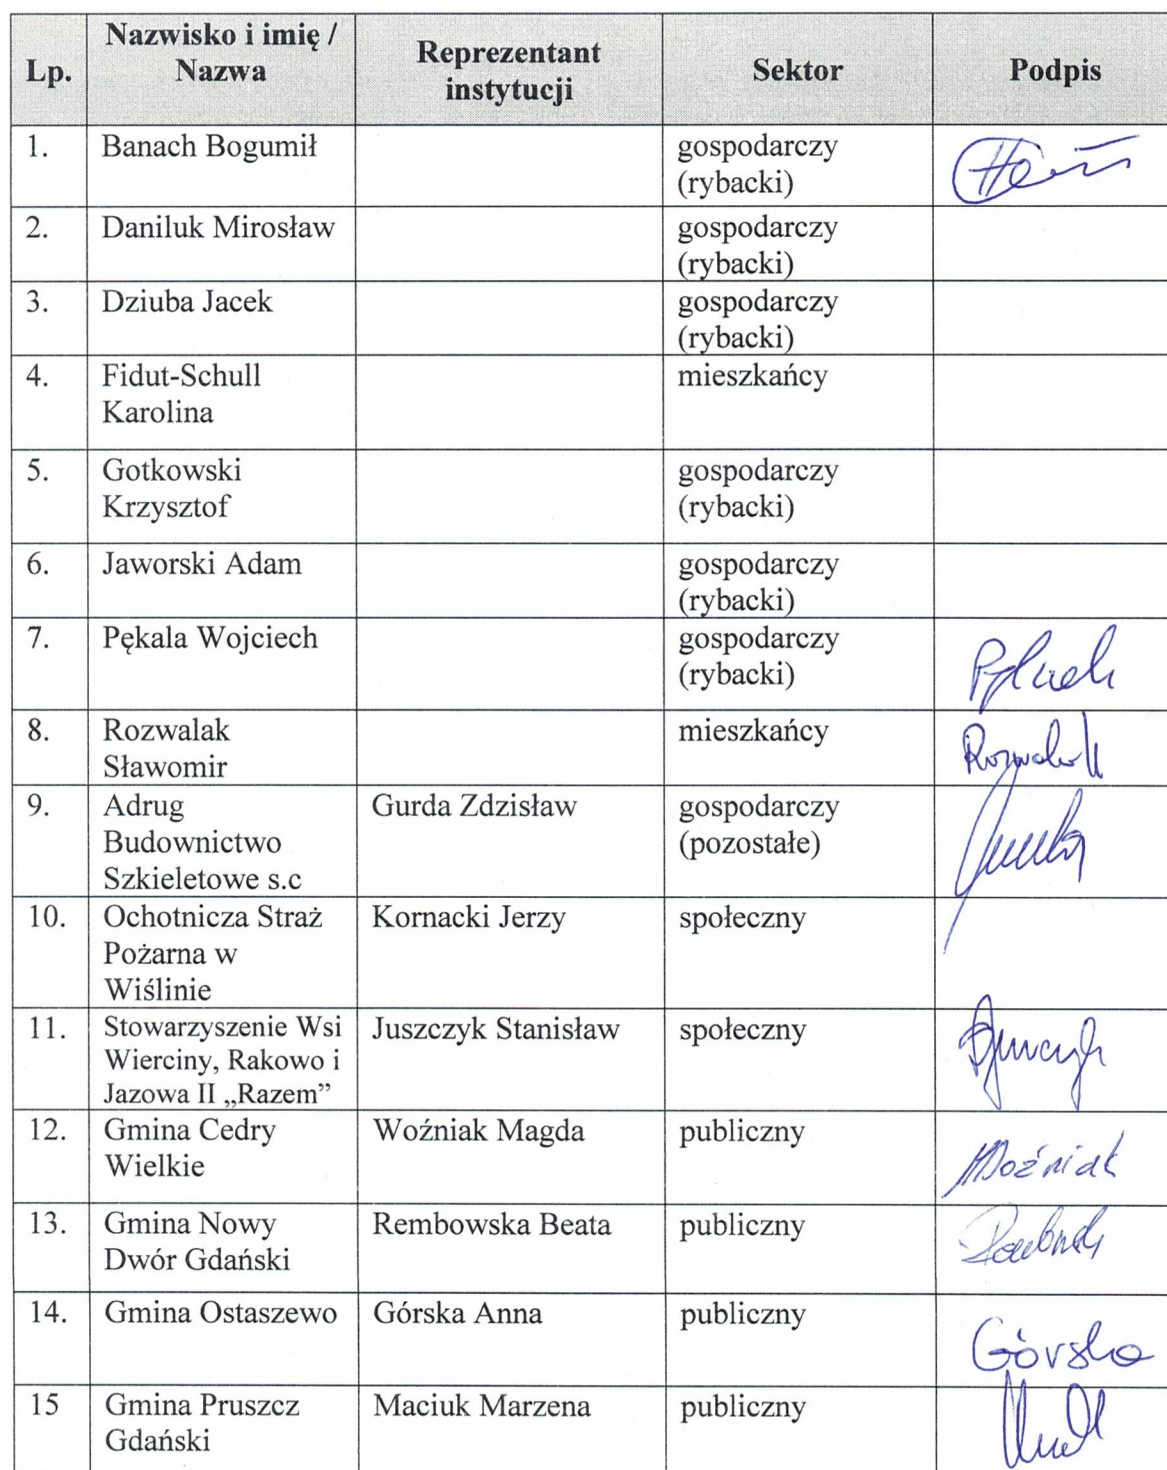 Lp.
Nazwisko i imię /
Nazwa
Reprezentant
instytucji
Sektor
Podpis
1.
Banach Bogumił
gospodarczy
(rybacki)
2.
Daniluk Mirosław
gospodarczy
(rybacki)
3.
Dziuba Jacek
gospodarczy
(rybacki)
4.
Fidut-Schull
Karolina
mieszkańcy
5.
Gotkowski
Krzysztof
gospodarczy
(rybacki)
6.
Jaworski Adam
gospodarczy
(rybacki)
7.
Pękala Wojciech
gospodarczy
(rybacki)
8.
Rozwalak
Sławomir
mieszkańcy
9.
Adrug
Budownictwo
Szkieletowe s.c
Gurda Zdzisław
gospodarczy
(pozostałe)
10.
Ochotnicza Straż
Pożarna w
Wiślinie
Kornacki Jerzy
społeczny
11.
Stowarzyszenie Wsi
Wierciny, Rakowo i
Jazowa II „Razem”
Juszczyk Stanisław
społeczny
12.
Gmina Cedry
Wielkie
Woźniak Magda
publiczny
MWoźniak
13.
Gmina Nowy
Dwór Gdański
Rembowska Beata
publiczny
14.
Gmina Ostaszewo
Górska Anna
publiczny
Górska
15
Gmina Pruszcz
Gdański
Maciuk Marzena
publiczny